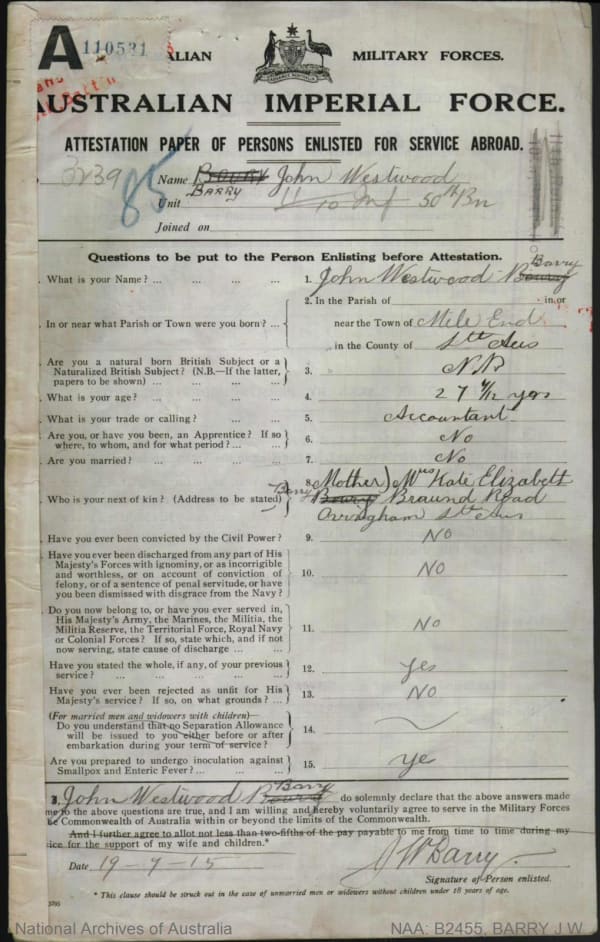 A 110531
ALIAN MILITARY FORCES.
AUSTRALIAN IMPERIAL FORCE.
ATTESTATION PAPER OF PERSONS ENLISTED FOR SERVICE ABROAD.
3239 85
Name John Westwood
BARRY
Unit 11/10 Inf 50th Bn
Joined on
Questions to be put to the Person Enlisting before Attestation.
. What is your Name? ... 1. John Westwood Barry
. In or near what Parish or Town were you born? ... 2. In the Parish of in, or
near the Town of Mile End
in the County of Sth Aus
. Are you a natural born British Subject or a
Naturalized British Subject? (N.B.—If the latter,
papers to be shown) ... 3. N.B
. What is your age? ... 4. 27 yrs
. What is your trade or calling? ... 5. Accountant
. Are you, or have you been, an Apprentice? If so
where, to whom, and for what period? ... 6. No
. Are you married? ... 7. No
. Who is your next of kin? (Address to be stated) 8. (Mother) Mrs Kate Elizabeth
Barry Braund Road
Ovingham Sth Aus
Have you ever been convicted by the Civil Power? 9. NO
Have you ever been discharged from any part of His
Majesty's Forces with ignominy, or as incorrigible
and worthless, or on account of conviction of
felony, or of a sentence of penal servitude, or have
you been dismissed with disgrace from the Navy? 10. NO
Do you now belong to, or have you ever served in,
His Majesty's Army, the Marines, the Militia, the
Militia Reserve, the Territorial Force, Royal Navy
or Colonial Forces? If so, state which, and if not
now serving, state cause of discharge ... 11. No
Have you stated the whole, if any, of your previous
service? ... 12. yes
Have you ever been rejected as unfit for His
Majesty's service? If so, on what grounds? ... 13. NO
(For married men and widowers with children)—
Do you understand that no Separation Allowance
will be issued to you either before or after
embarkation during your term of service? 14.
Are you prepared to undergo inoculation against
Smallpox and Enteric Fever? ... 15. ye
I, John Westwood Barry do solemnly declare that the above answers made
me to the above questions are true, and I am willing and hereby voluntarily agree to serve in the Military Forces
Commonwealth of Australia within or beyond the limits of the Commonwealth.
And I further agree to allot not less than two-fifths of the pay payable to me from time to time during my
ice for the support of my wife and children.*
Date 19-7-15 J W Barry.
Signature of Person enlisted.
* This clause should be struck out in the case of unmarried men or widowers without children under 18 years of age.
National Archives of Australia NAA: B2455, BARRY J W